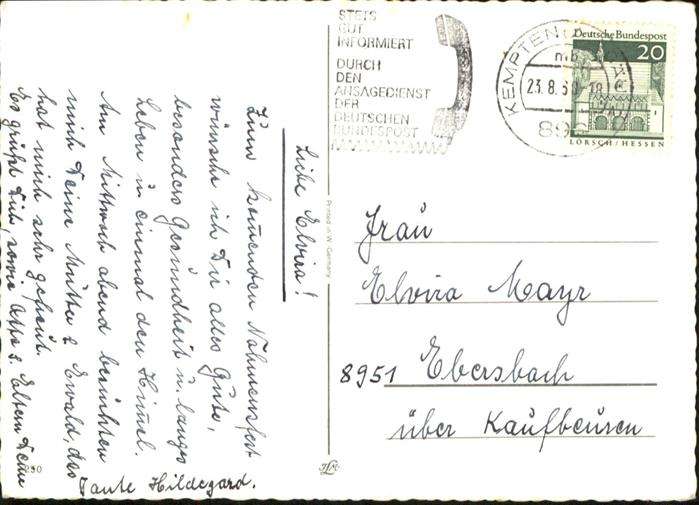 STETS
GUT
INFORMIERT
DURCH
DEN
ANSAGEDIENST
DER
DEUTSCHEN
BUNDESPOST
KEMPTEN
23.8.
18
896
Deutsche Bundespost
20
LORSCH/HESSEN
Liebe Elvira!
Zum kommenden Namensfest
wünsche ich Dir alles Gute,
besonders Gesundheit u. langes
Leben u. einmal den Himmel.
Am Mittwoch abend besuchten
mich Deine Mutter u. Ewald, das
hat mich sehr gefreut.
Es grüßt Dich sowie Eltern Deine
Tante Hildegard.
Printed in W. Germany
Frau
Elvira Mayr
8951 Ebersbach
über Kaufbeuren